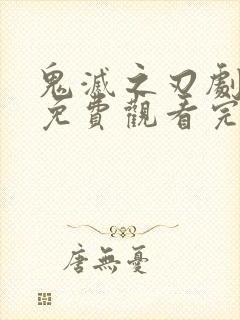 鬼滅之刃劇
免費觀看完
唐無憂